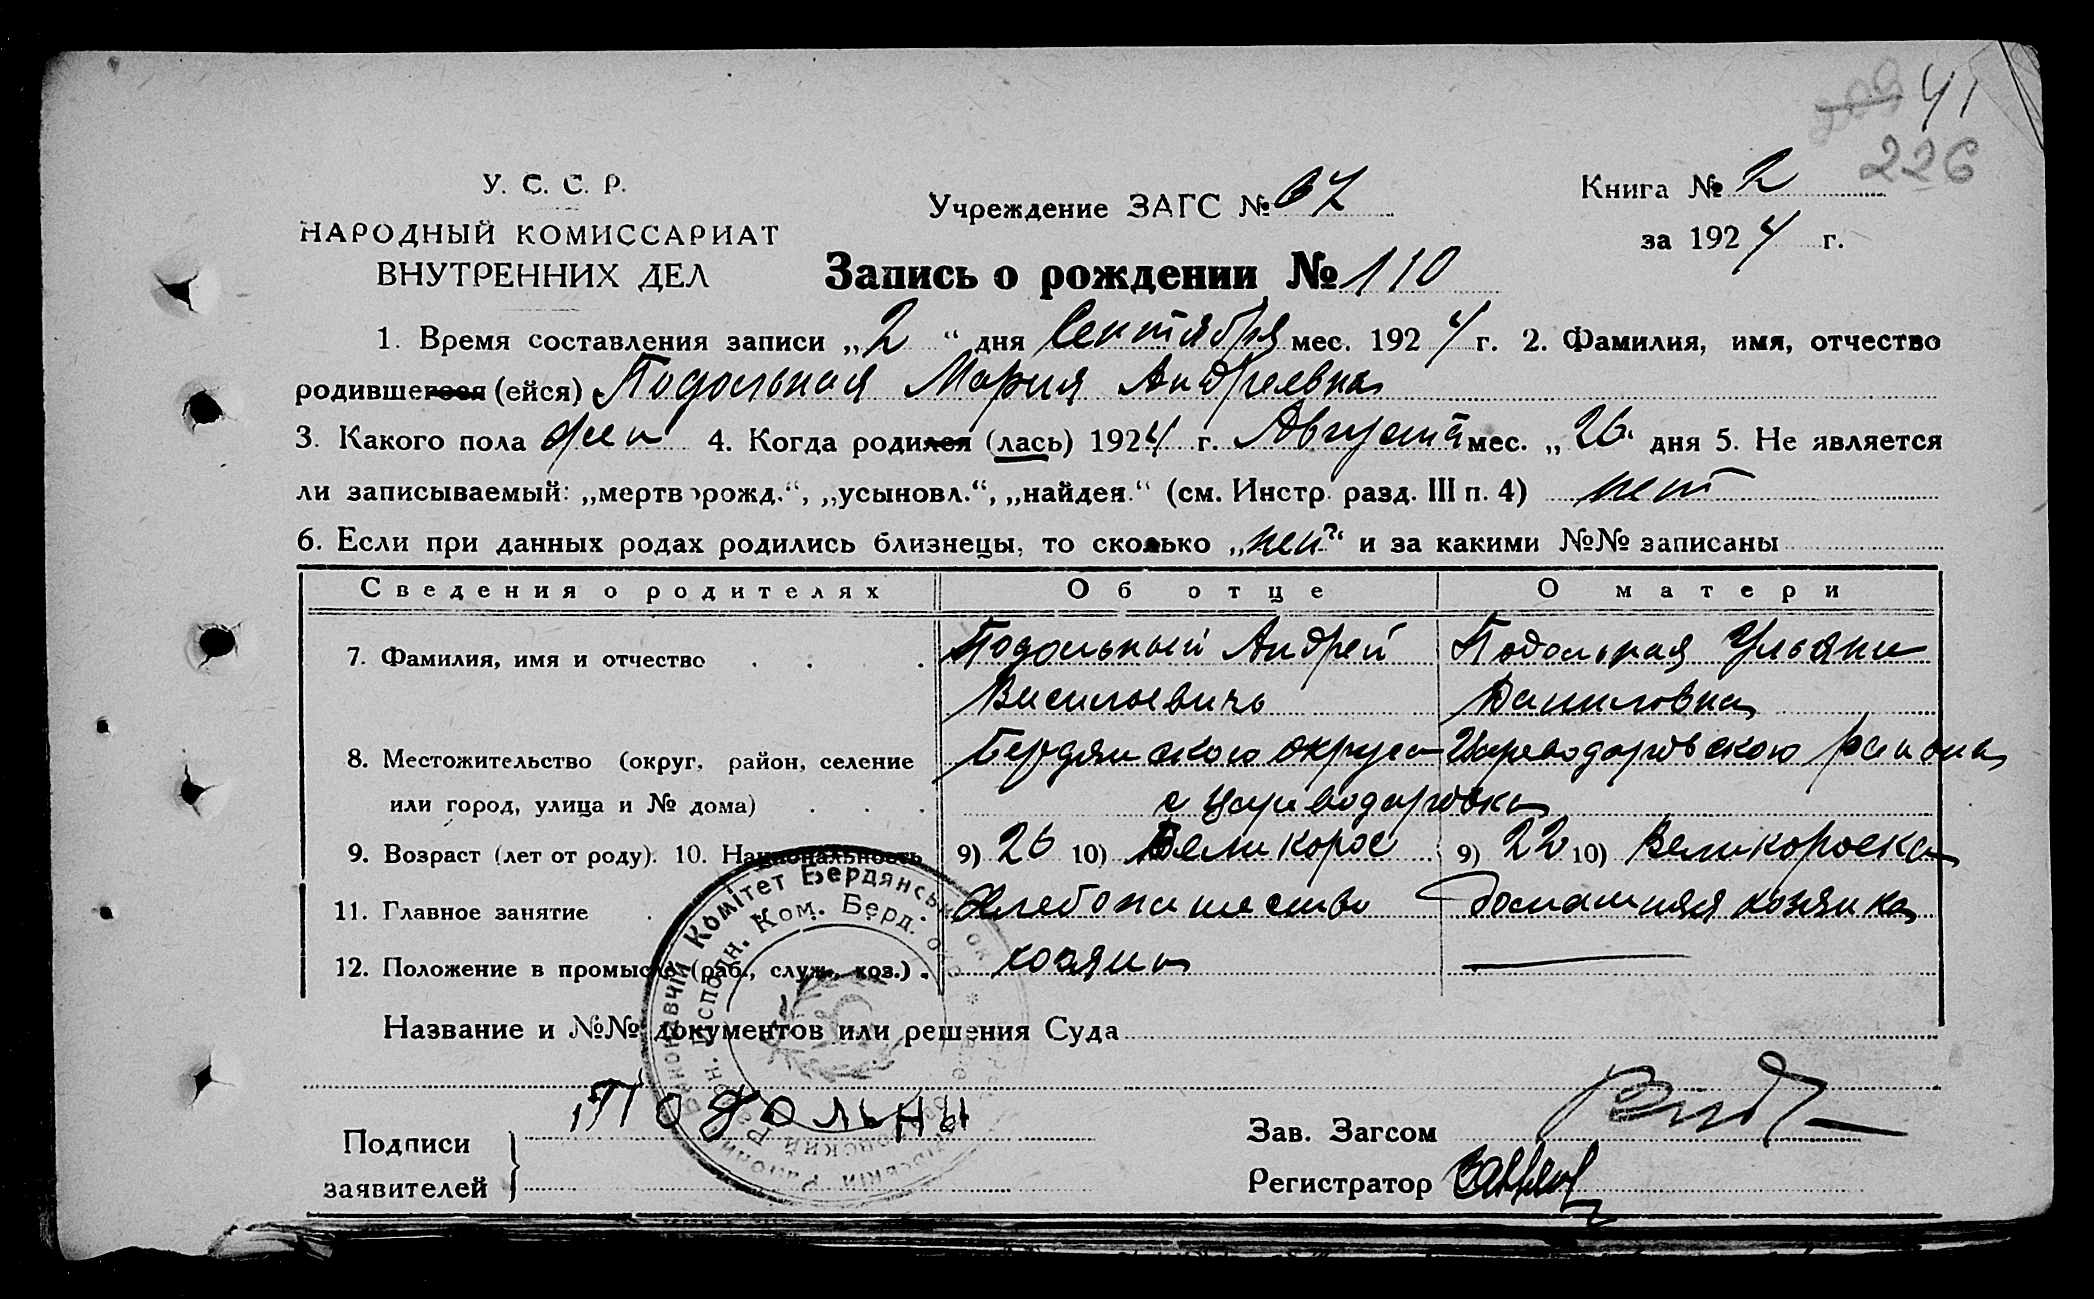 209 41
226
У. С. С. Р.
НАРОДНЫЙ КОМИССАРИАТ
ВНУТРЕННИХ ДЕЛ
Учреждение ЗАГС № 67
Книга № 2
за 1924 г.
Запись о рождении № 110
1. Время составления записи „2“ дня Сентября мес. 1924 г. 2. Фамилия, имя, отчество
родившегося (ейся) Подольная Мария Андреевна
3. Какого пола жен 4. Когда родился (лась) 1924 г. Августа мес. „26 дня 5. Не является
ли записываемый: „мертворожд.“, „усыновл.“, „найден.“ (см. Инстр. разд. III п. 4) нет
6. Если при данных родах родились близнецы, то сколько „нет“ и за какими №№ записаны
Сведения о родителях Об отце О матери
7. Фамилия, имя и отчество Подольный Андрей Подольная Ульяна
Васильевичь Даниловна
8. Местожительство (округ, район, селение Бердянского округа Цареводаровского района
или город, улица и № дома) с Цареводаровка
9. Возраст (лет от роду). 10. Национальность 9) 26 10) Великорос 9) 22 10) Великороска
11. Главное занятие Хлебопашество Домашняя хозяйка
12. Положение в промысле (раб., служ., хоз.) хозяин
Название и №№ документов или решения Суда
Подольны
Подписи
заявителей
Зав. Загсом
Регистратор
Виконавчій Комітет Бердянськ ок
Исполн. Ком. Берд. о